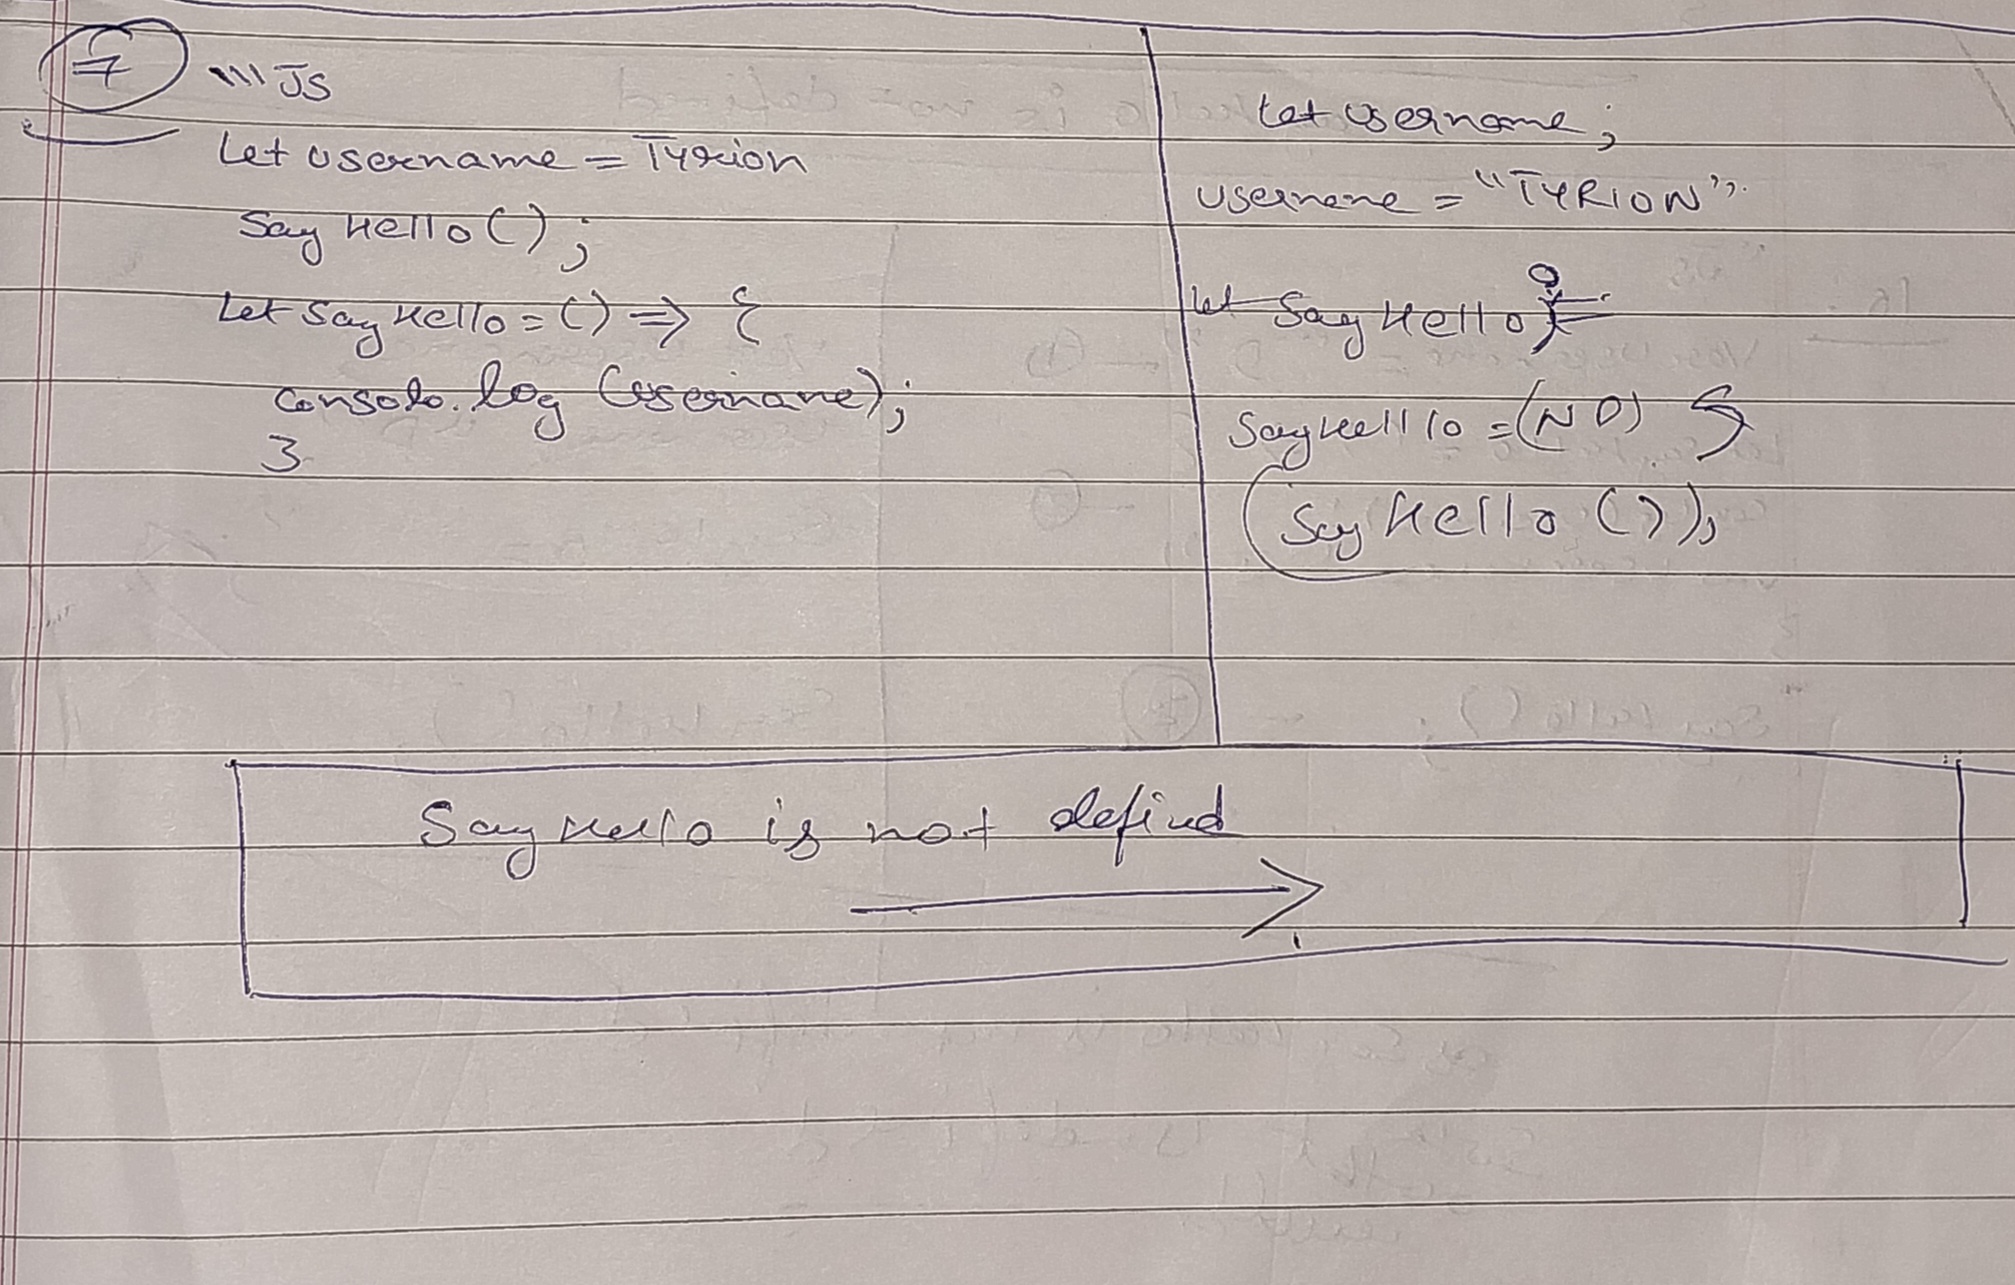 7 \\\ JS
Let username = Tyrion
Say Hello ( ) ;
Let Say Hello = ( ) => {
console. log (username) ;
}
Let username ;
username = "TYRION".
Let Say Hello
SayHelllo = (ND)
(Say Hello ( ) ) ;
Say Hello is not defind